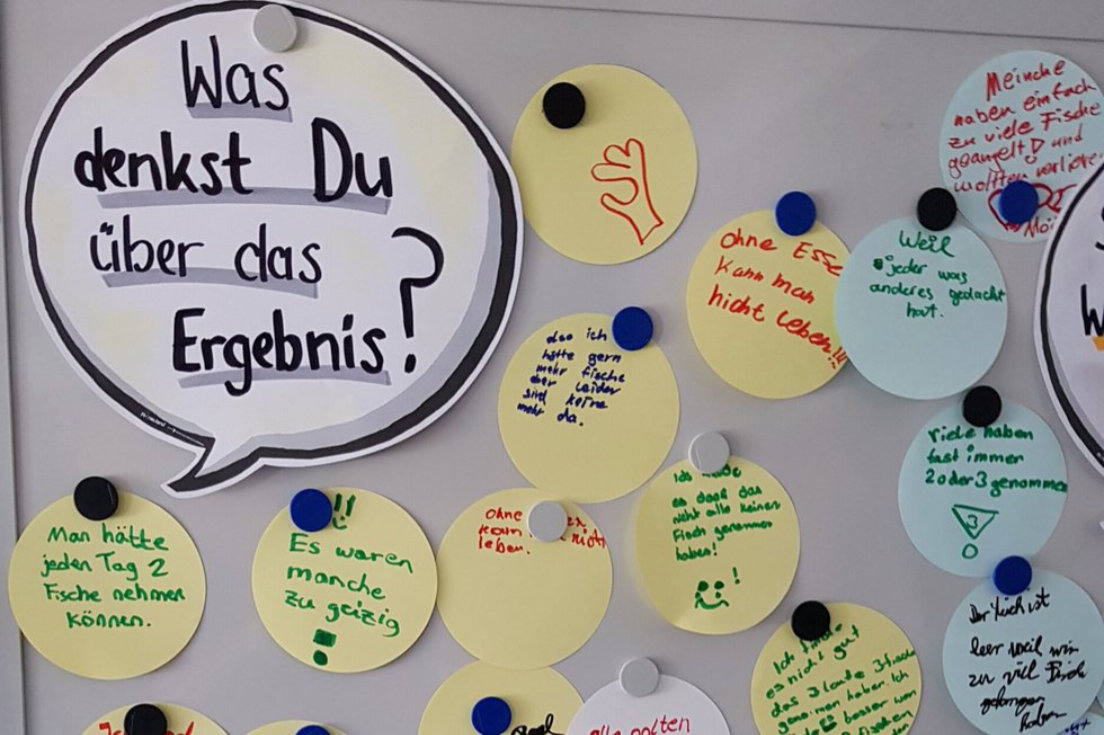 Was
denkst Du
über das
Ergebnis?
Meinche
haben einfach
zu viele Fische
geangelt und
wollten
ohne Esse
kann man
nicht leben!!!
Weil
jeder was
anderes gedacht
hat.
also ich
hätte gern
mehr fische
aber leider
sind keine
mehr da.
Viele haben
fast immen
2 oder 3 genommen
3
Ich
es doof das
nicht alle keinen
Fisch genommen
haben!
ohne
kann
leben.
!!
Es waren
manche
zu geizig
Man hätte
jeden Tag 2
Fische nehmen
können.
Der Teich ist
leer weil wir
zu viel Fische
gefangen
haben
Ich finde
es nicht gut
das 3 leute 3 fische
genommen haben. Ich
besser wen
alle sollten